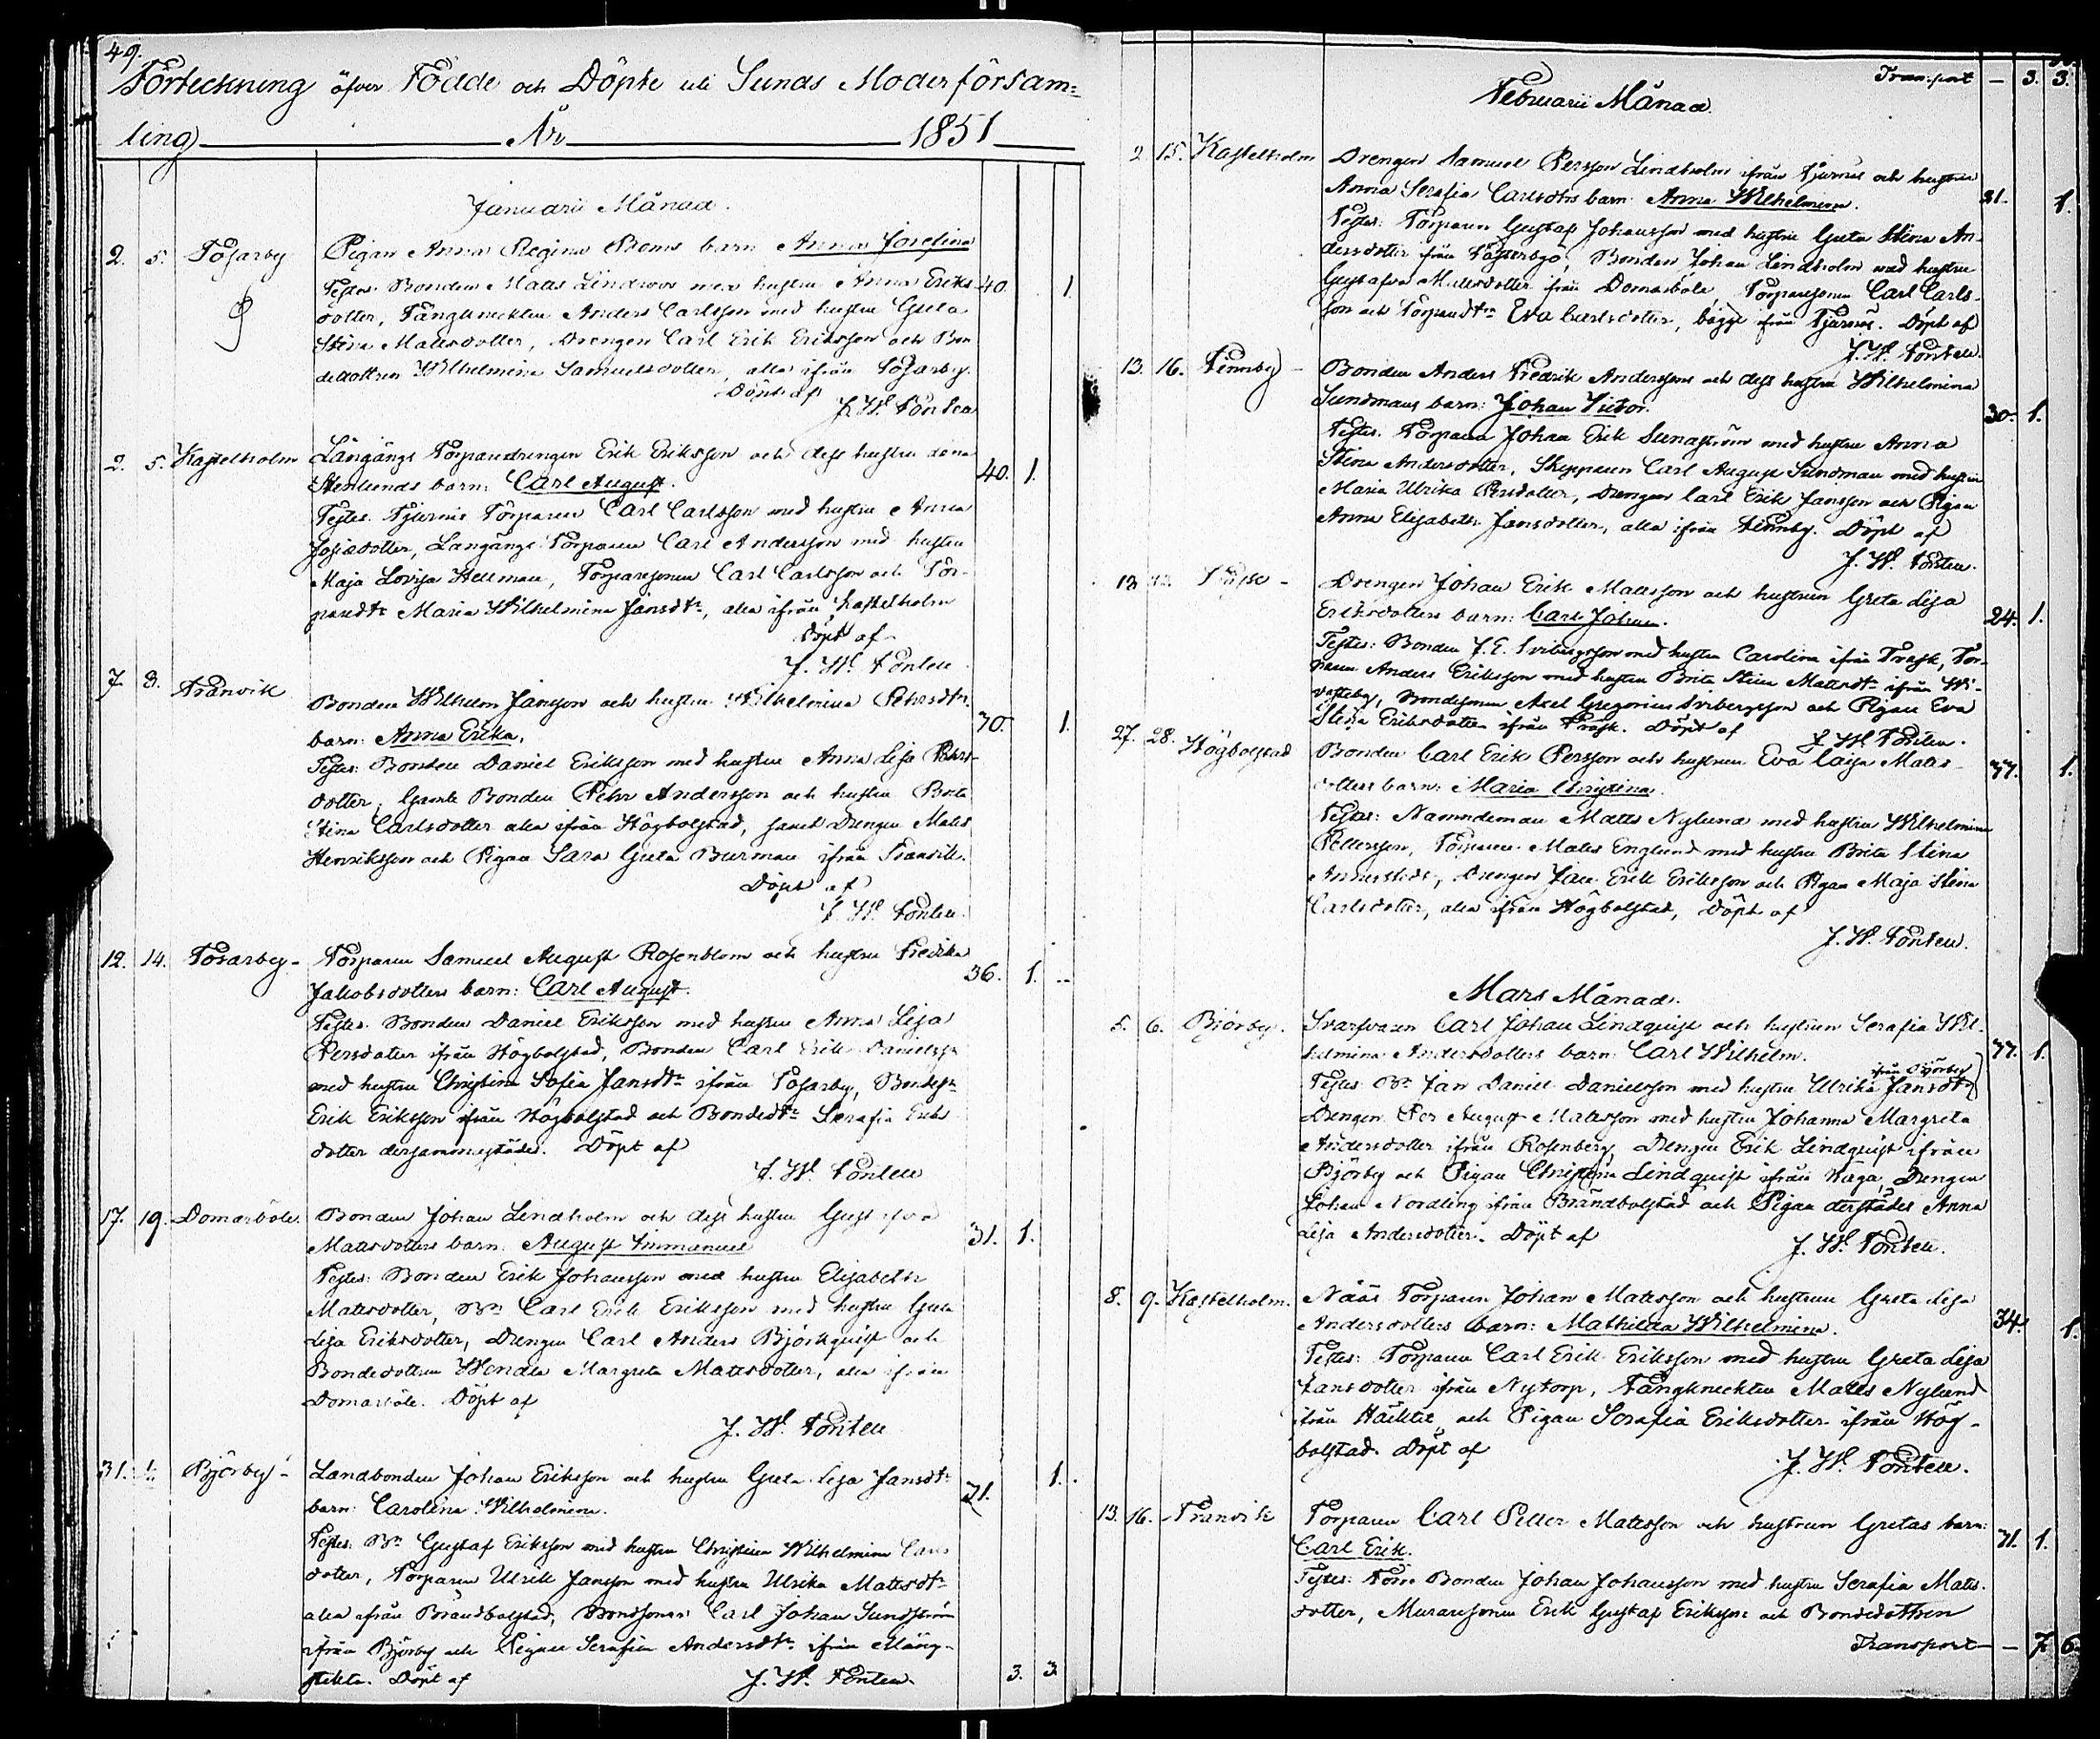 49.
Förteckning öfver Födde och Döpte uti Sunds Moderförsam=
ling År 1851
Januarii Månad.
2. 5. Tosarby Pigan Anna Regina Broms barn Anna Josefina
Testes: Bonden Matts Lindroos med hustru Anna Eriks 40. 1
dotter, Fångknekten Anders Carlsson med hustru Greta
Stina Mattsdotter, Drengen Carl Erik Eriksson och Bon
dedottren Wilhelmina Samuelsdotter, alla ifrån Tosarby.
Döpt af
J. W. Pontén
2. 5. Kastelholm Långängs Torparedrengen Erik Eriksson och dess hustru Lena
Stenlunds barn: Carl August. 40. 1.
Testes. Torparen Carl Carlsson med hustru Anna
Josefsdotter, Langängs Torparen Carl Andersson med hustru
Maja Lovisa Hellman, Torparesonen Carl Carlsson och Tor-
paredtr Maria Wilhelmina Jansdtr, alla ifrån Kastelholm
Döpt af
J. W. Pontén
7. 8. Tranvik Bonden Wilhelm Jansson och hustru Wilhelmina Pehrsdtr
barn: Anna Erika. 30. 1.
Testes: Bonden Daniel Eriksson med hustru Anna Lisa Pehrs-
dotter, Gamle Bonden Pehr Andersson och hustru Brita
Stina Carlsdotter alla ifrån Högbolstad, samt Drengen Matts
Henriksson och Pigan Sara Greta Burman ifrån Tranvik.
Döpt af
J. W. Pontén.
12. 14. Tosarby- Torparen Samuel August Rosenblom och hustru Fredrika
Jakobsdotters barn: Carl August. 36. 1.
Testes. Bonden Daniel Eriksson med hustru Anna Lisa
Persdotter ifrån Högbolstad, Bonden Carl Erik Danielsson
med hustru Christina Sofia Jansdtr ifrån Tosarby, Bondesn
Erik Eriksson ifrån Högbolstad och Bondedtr Serafia Eriks
dotter dersammastädes. Döpt af
J. W. Pontén
17. 19. Domarböle. Bonden Johan Lindholm och dess hustru Gustafva
Mattsdotters barn: August Immanuel 31. 1.
Testes: Bonden Erik Johansson med hustru Elisabeth
Mattsdotter, Bn Carl Erik Eriksson med hustru Greta
Lisa Eriksdotter, Drengen Carl Anders Björkquist och
Bondedottren Wendla Margreta Mattsdotter, alla ifrån
Domarböle. Döpt af
J. W. Pontén
31. Björby- Landbonden Johan Eriksson och hustru Greta Lisa Jansdtr
barn: Carolina Wilhelmina. 31. 1.
Testes: Bn Gustaf Eriksson med hustru Christina Wilhelmina Carls
dotter, Torparen Ulrik Jansson med hustru Ulrika Mattsdtr
alla ifrån Brändbolstad, Bondsonen Carl Johan Sundström
ifrån Björby och Pigan Serafia Andersdtr ifrån Mång-
stekta. Döpt af J. W. Pontén. 3. 3.
Transport - 3. 3.
Februarii Månad.
2. 15. Kastelholm Drengen Samuel Persson Lindholm ifrån Tjernäs och hustrun
Anna Serafia Carlsdtrs barn: Anna Wilhelmina. 31. 1.
Testes: Torparen Gustaf Johansson med hustru Greta Stina An-
dersdotter ifrån , Bonden Johan Lindholm med hustru
Gustafva Mattsdotter ifrån Domarböle, Torparesonen Carl Carls-
son och Torparedtrn Eva Carlsdotter, bägge ifrån Tjernäs. Döpt af
J. W. Pontén.
13. 16. Finnby- Bonden Anders Fredrik Anderssons och dess hustru Wilhelmina
Sundmans barn: Johan Victor. 30. 1.
Testes. Torparen Johan Erik Sundström med hustru Anna
Stina Andersdotter, Skepparen Carl August Sundman med hustru
Maria Ulrika Persdotter, Drengen Carl Erik Jansson och Pigan
Anna Elisabeth Jansdotter, alla ifrån Finnby. Döpt af
J. W. Pontén.
13 Drengen Johan Erik Mattsson och hustrun Greta Lisa
Eriksdotters barn: Carl Johan. 24. 1.
Testes: Bonden J. E. Sribergsson med hustru Carolina ifrån Träsk, Tor-
paren Anders Eriksson med hustru Brita Stina Mattsdtr ifrån Wi-
vasteby, Bondesonen Axel Gregorius Sribergsson och Pigan Eva
Stina Eriksdotter ifrån Träsk. Döpt af J. W. Pontén.
27. 28. Högbolstad Bonden Carl Erik Persson och hustrun Eva Caisa Matts-
dotters barn: Maria Christina. 37. 1.
Testes: Namndeman Matts Nylund med hustru Wilhelmina
Pettersson, Torparen Matts Englund med hustru Brita Stina
, Drengen Jan Erik Eriksson och Pigan Maja Stina
Carlsdotter, alla ifrån Högbolstad, Döpt af
J. W. Pontén.
Mars Månad.
5. 6. Björby. Svarfvaren Carl Johan Lindquist och hustrun Serafia Wil-
helmina Andersdotters barn: Carl Wilhelm. 37. 1.
ifrån Björby
Testes: Bn Jan Daniel Danielsson med hustru Ulrika Jansdtr
Drengen Per August Mattsson med hustru Johanna Margreta
Andersdotter ifrån Rosenberg, Drengen Erik Lindquist ifrån
Björby och Pigan Christina Lindquist ifrån Kaga, Drengen
Johan Nordling ifrån Brändbolstad och Pigan derstädes Anna
Lisa Andersdotter. Döpt af J. W. Pontén.
8. 9. Kastelholm. Nääs Torparen Johan Mattsson och hustrun Greta Lisa
Andersdotters barn: Mathilda Wilhelmina. 34. 1.
Testes: Torparen Carl Erik Eriksson med hustru Greta Lisa
Jansdotter ifrån Nytorp, Fångknekten Matts Nylund
ifrån Häktet och Pigan Serafia Eriksdotter ifrån Hög-
bolstad. Döpt af J. W. Pontén.
13. 16. Tranvik Torparen Carl Petter Mattsson och hustrun Gretas barn:
Carl Erik. 31. 1.
Testes: Bonden Johan Johansson med hustru Serafia Matts-
dotter, Muraresonen Erik Gustaf Eriksson och Bondedottren
Transport - 7. 6.